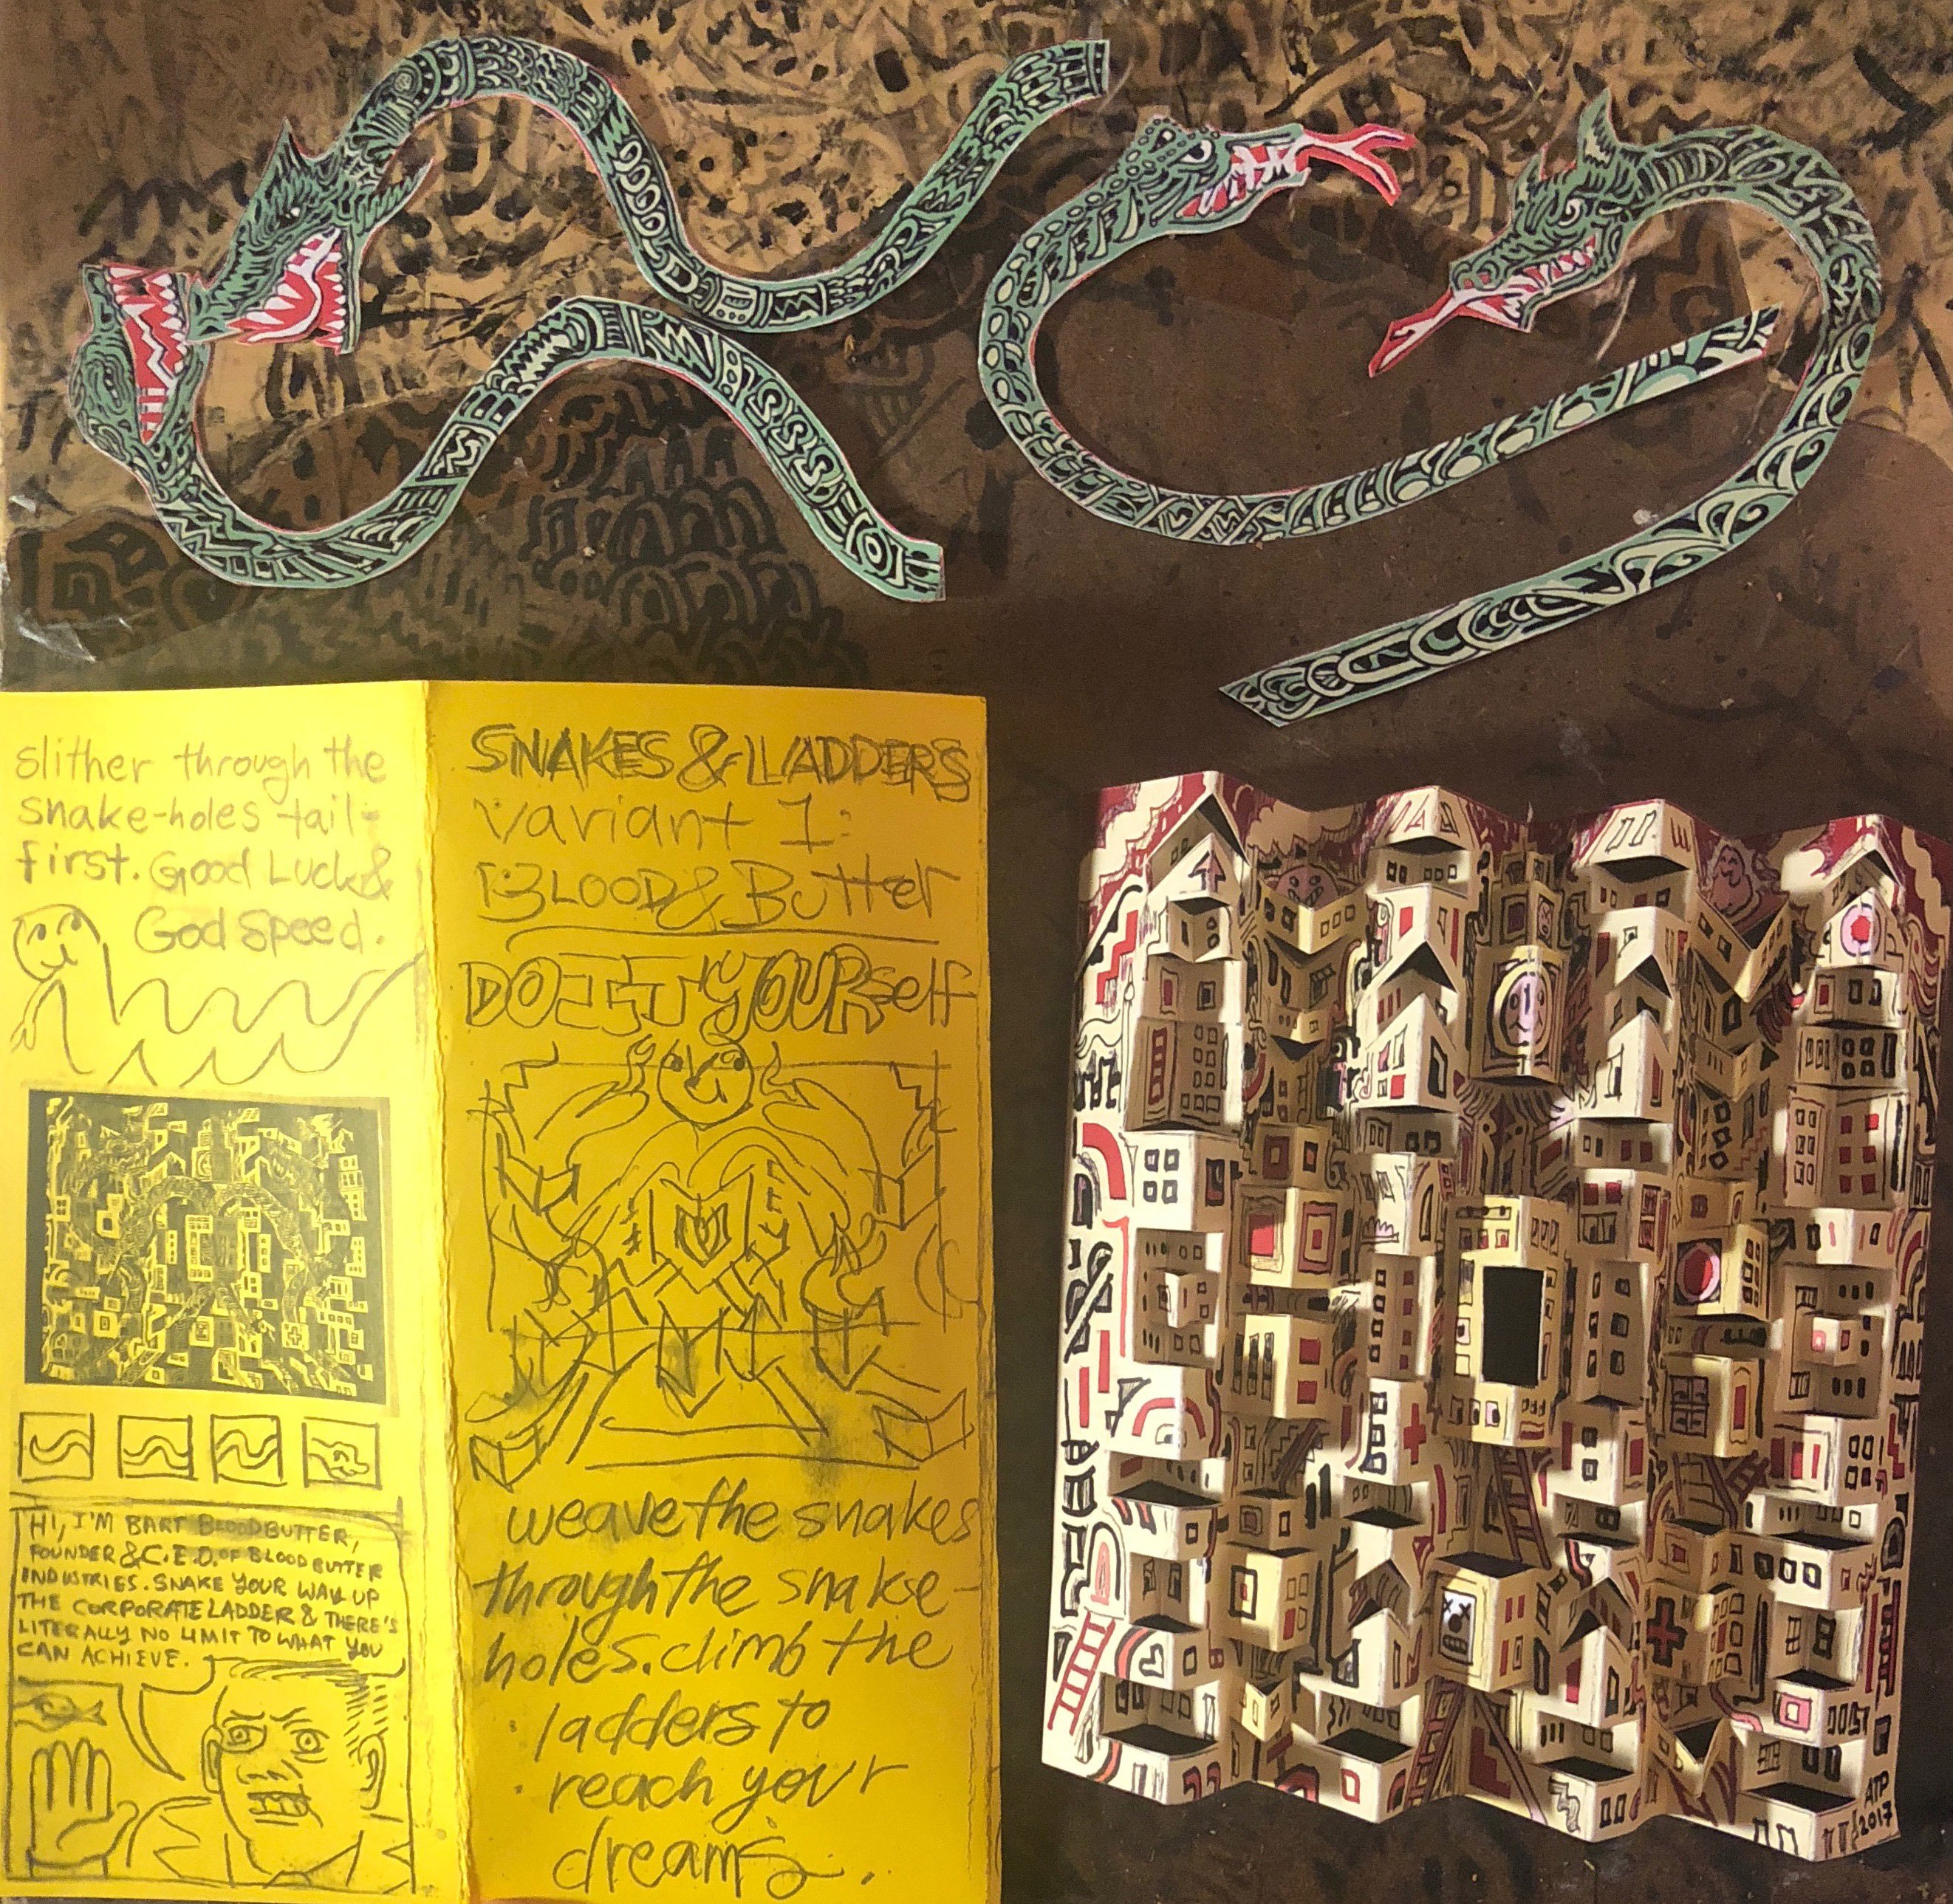 slither through the
snake-holes tail-
first. Good Luck &
God Speed.
HI, I'M BART BLOODBUTTER,
FOUNDER & C.E.O. OF BLOODBUTTER
INDUSTRIES. SNAKE YOUR WAY UP
THE CORPORATE LADDER & THERE'S
LITERALLY NO LIMIT TO WHAT YOU
CAN ACHIEVE.
SNAKES & LADDERS
variant 1:
BLOOD & Butter
DO IT YOURself
weave the snakes
through the snake-
holes. climb the
ladders to
reach your
dreams.
ATP
2017